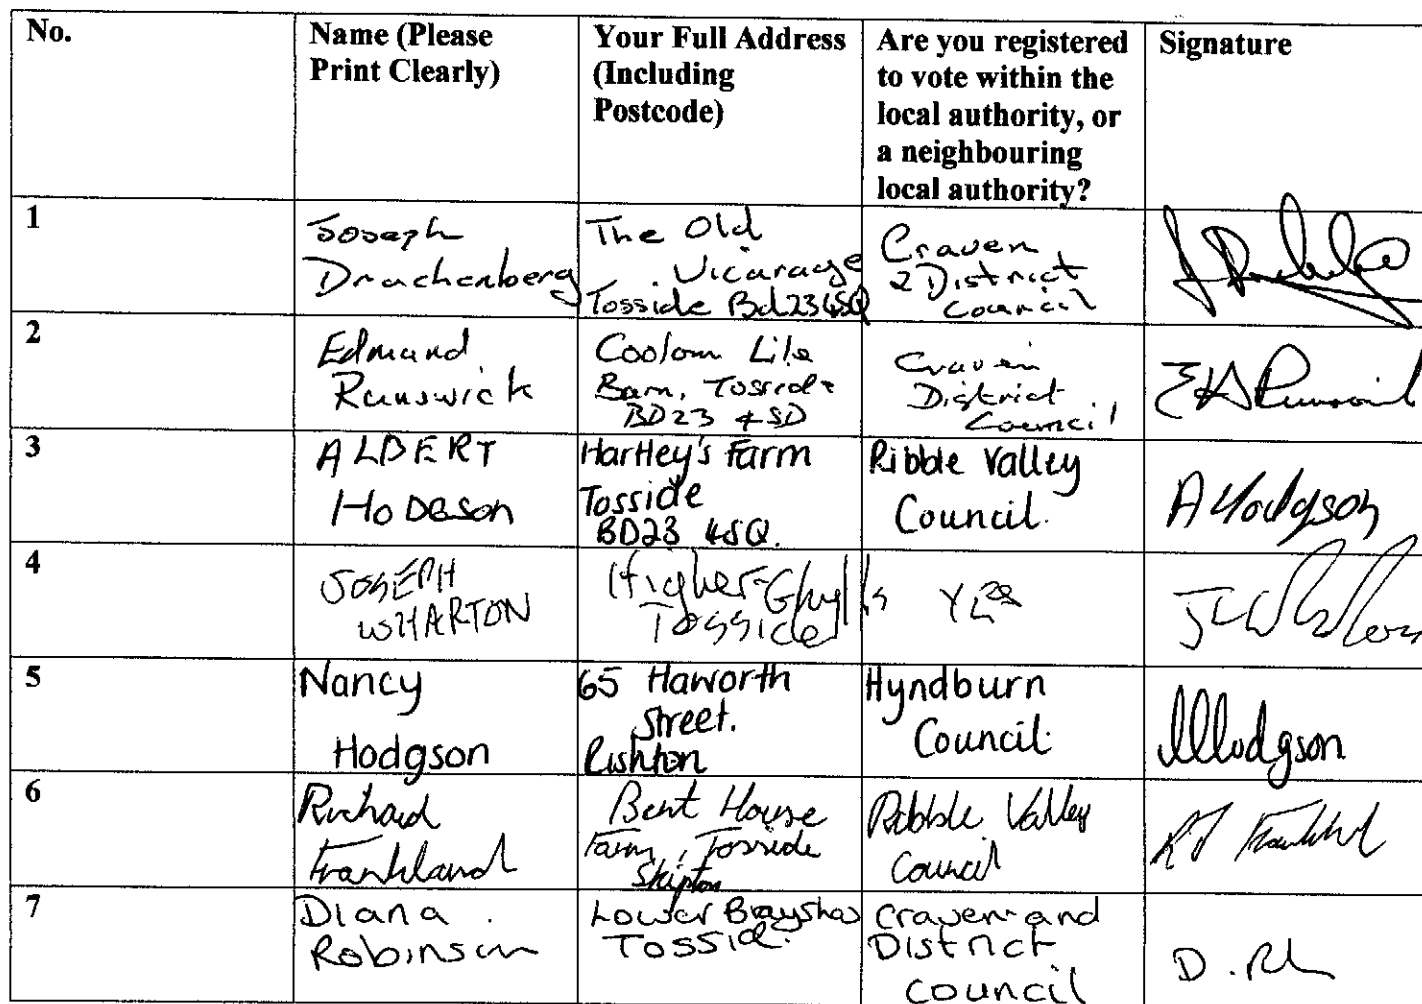 No.
Name (Please
Print Clearly)
Your Full Address
(Including
Postcode)
Are you registered
to vote within the
local authority, or
a neighbouring
local authority?
Signature
1
Joseph
Drachenberg
The Old
Vicarage
Tosside Bd23 4SQ
Craven
District
Council
2
Edmund
Runswick
Barn, Tosside
BD23 4SD
Craven
District
Council
3
ALBERT
HODGSON
Hartley's Farm
Tosside
BD23 4SQ.
Ribble Valley
Council.
A Hodgson
4
JOSEPH
WHARTON
Higher Ghylls
Tosside
Yes
5
Nancy
Hodgson
65 Haworth
Street.
Rishton
Hyndburn
Council.
Hodgson
6
Richard
Frankland
Bent House
Farm, Tosside
Skipton
Ribble Valley
Council
7
Diana
Robinson
Lower Brayshaw
Tosside.
Craven and
District
Council
D.